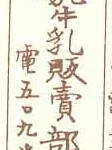 牛乳販賣部
電五〇九